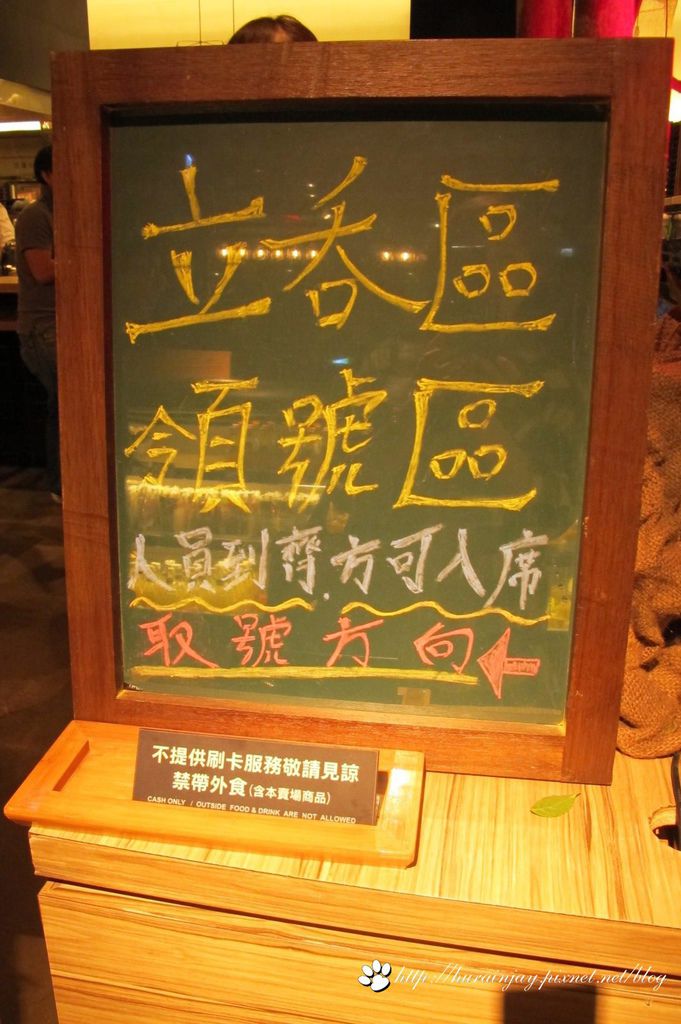 立吞區
領號區
人員到齊.方可入席
取號方向
不提供刷卡服務敬請見諒
禁帶外食(含本賣場商品)
CASH ONLY / OUTSIDE FOOD & DRINK ARE NOT ALLOWED
http://hurainjay.pixnet.net/blog